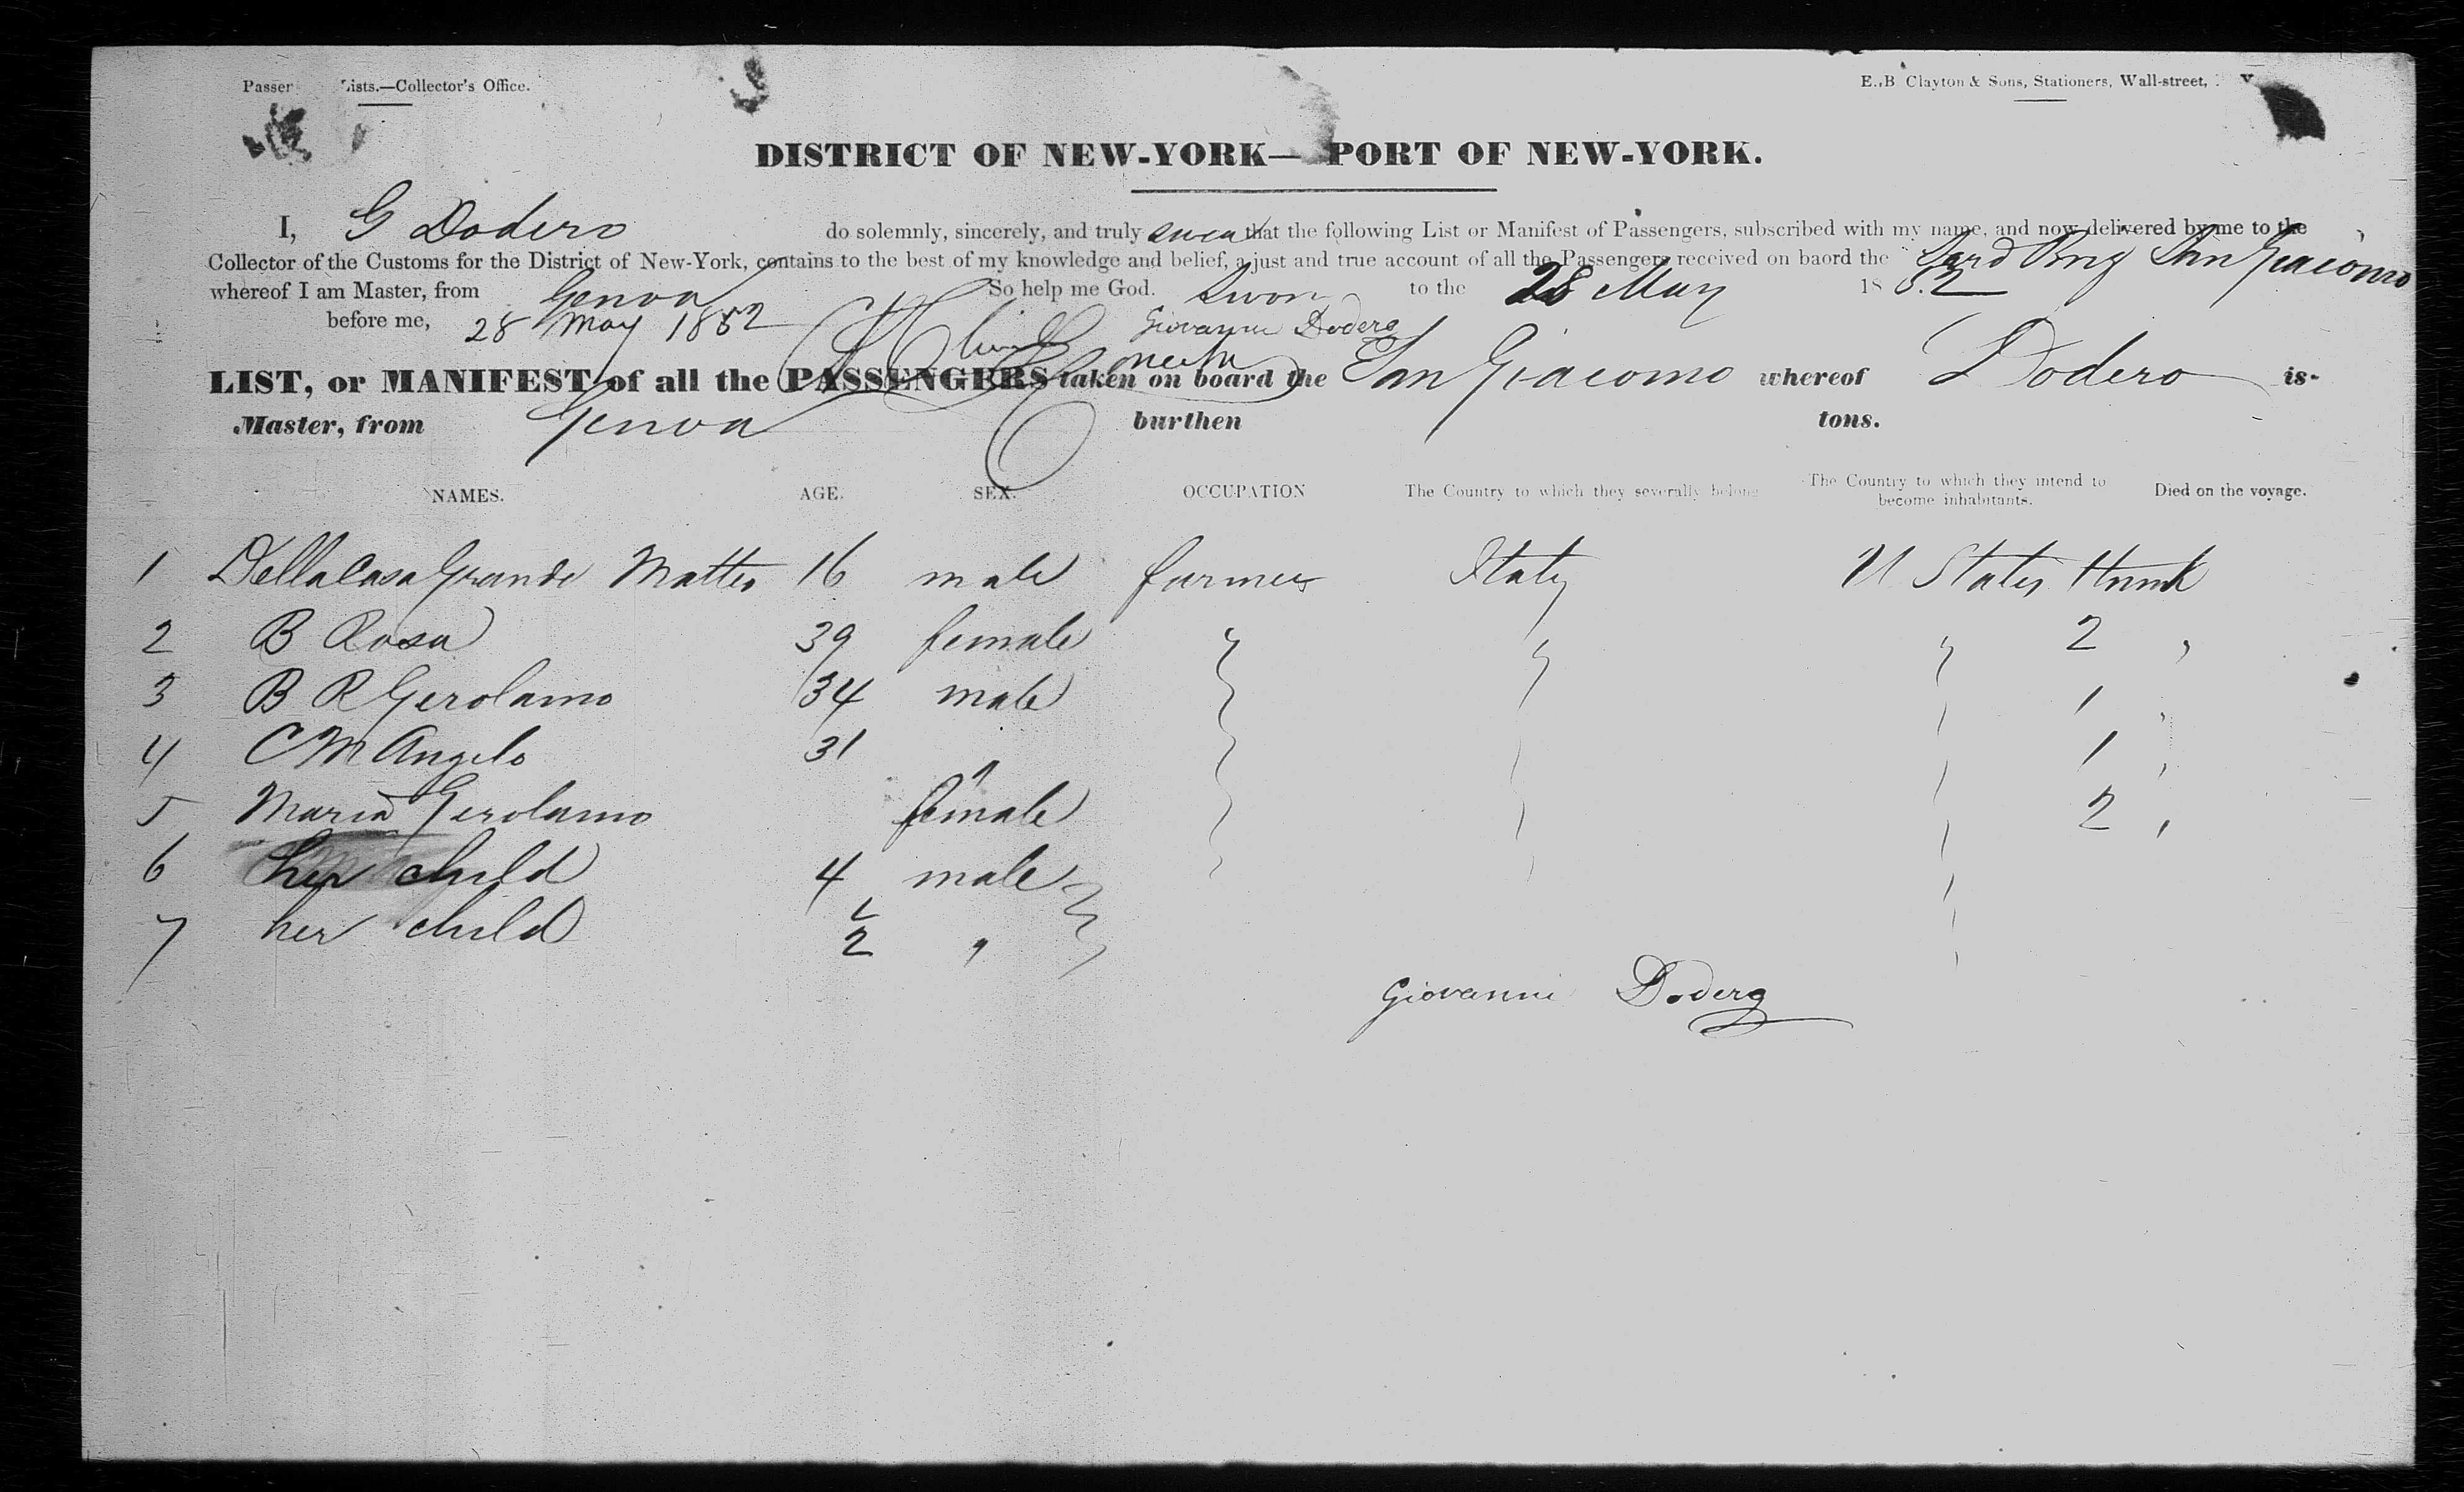 Passer Lists.—Collector's Office.
E. B Clayton & Sons, Stationers, Wall-street,
DISTRICT OF NEW-YORK— PORT OF NEW-YORK.
I, G Dodero do solemnly, sincerely, and truly swear that the following List or Manifest of Passengers, subscribed with my name, and now delivered by me to the
Collector of the Customs for the District of New-York, contains to the best of my knowledge and belief, a just and true account of all the Passengers received on baord the Sard Brig San Giacomo
whereof I am Master, from Genoa So help me God. Sworn to the 28 May 1852
before me, 28 May 1852 Giovanni Dodero
LIST, or MANIFEST of all the PASSENGERS taken on board the San Giacomo whereof Dodero is
Master, from Genoa burthen tons.
NAMES. AGE. SEX. OCCUPATION The Country to which they severally belong The Country to which they intend to become inhabitants. Died on the voyage.
1 Dellacasagrande Matteo 16 male farmer Italy U States
2 B Rosa 39 female " " " 2 "
3 B R Gerolamo 34 male " " " 1 "
4 C M Angelo 31 " " " " 1 "
5 Maria Gerolamo female " " " 2 "
6 her child 4 male " " "
7 her child 1/2 " "
Giovanni Dodero